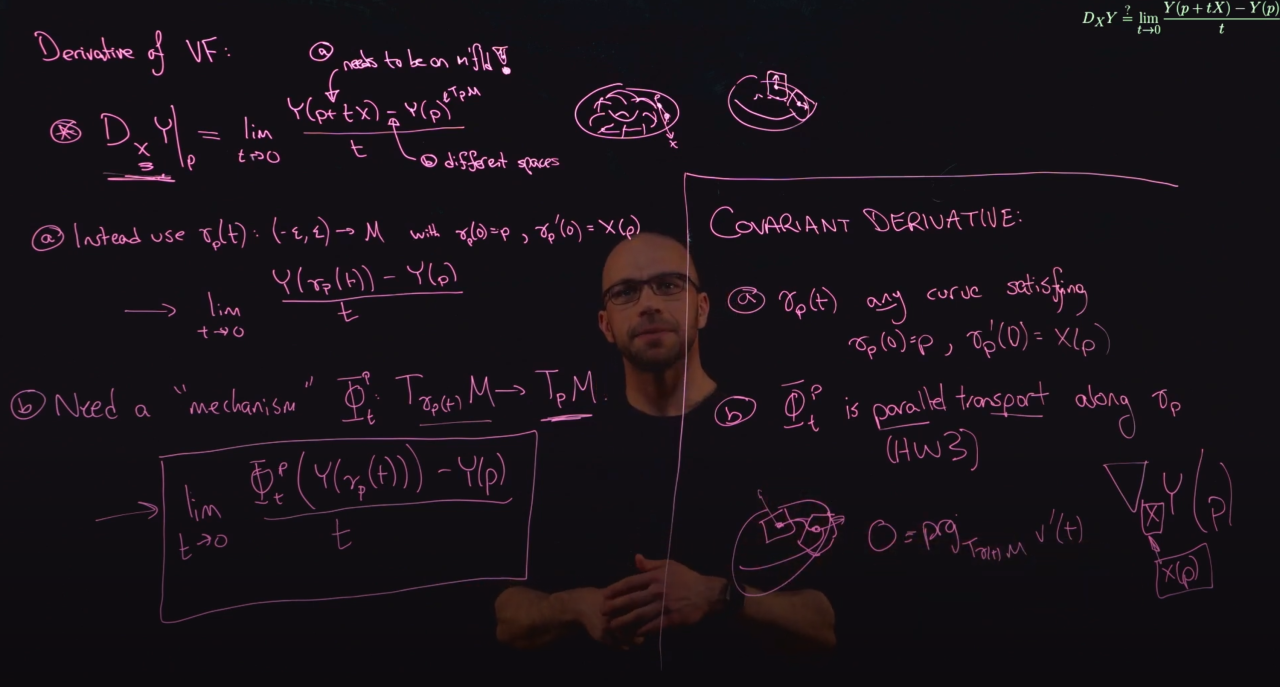 D_X Y ≟ lim_{t→0} (Y(p + tX) − Y(p)) / t
Derivative of VF:
ⓐ needs to be on mfld!
⊛ D_X Y|_p = lim_{t→0} (Y(p+tX) − Y(p)) / t
∈T_pM
ⓑ different spaces
x
ⓐ Instead use γ_p(t): (-ε, ε) → M with γ_p(0)=p, γ_p'(0) = X(p)
→ lim_{t→0} (Y(γ_p(t)) − Y(p)) / t
ⓑ Need a "mechanism" Φ_t^p: T_{γ_p(t)}M → T_pM.
→ lim_{t→0} (Φ_t^p(Y(γ_p(t))) − Y(p)) / t
COVARIANT DERIVATIVE:
ⓐ γ_p(t) any curve satisfying
γ_p(0)=p, γ_p'(0) = X(p)
ⓑ Φ_t^p is parallel transport along γ_p
(HW3)
0 = proj_{T_{γ(t)}M} v'(t)
∇_X Y(p)
X(p)